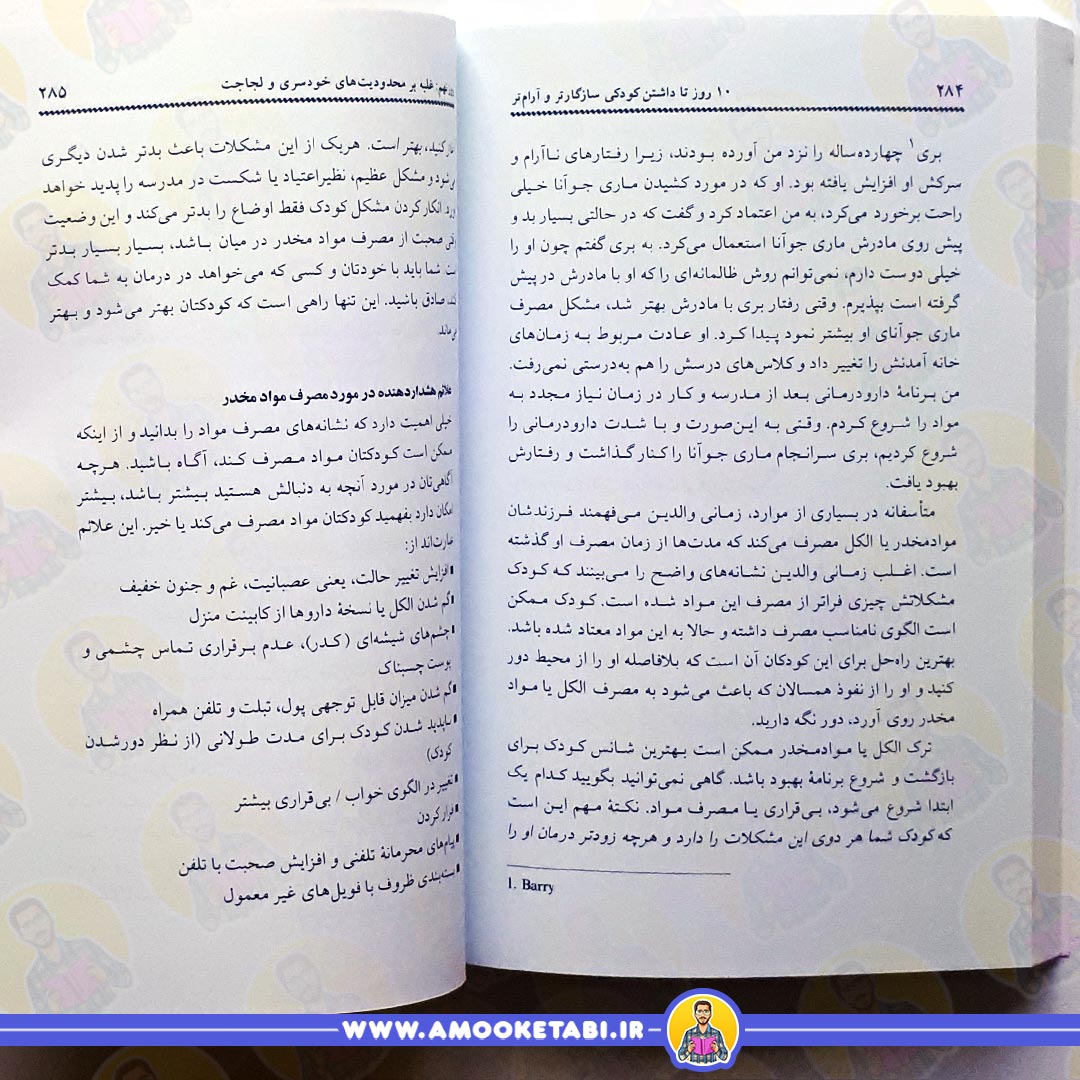 ۲۸۴
۱۰ روز تا داشتن کودکی سازگارتر و آرام‌تر
بری۱ چهارده‌ساله را نزد من آورده بودند، زیرا رفتارهای ناآرام و
سرکش او افزایش یافته بود. او که در مورد کشیدن ماری جوآنا خیلی
راحت برخورد می‌کرد، به من اعتماد کرد و گفت که در حالتی بسیار بد و
پیش روی مادرش ماری جوآنا استعمال می‌کرد. به بری گفتم چون او را
خیلی دوست دارم، نمی‌توانم روش ظالمانه‌ای را که او با مادرش در پیش
گرفته است بپذیرم. وقتی رفتار بری با مادرش بهتر شد، مشکل مصرف
ماری جوآنای او بیشتر نمود پیدا کرد. او عادت مربوط به زمان‌های
خانه آمدنش را تغییر داد و کلاس‌های درسش را هم به‌درستی نمی‌رفت.
من برنامهٔ دارودرمانی بعد از مدرسه و کار در زمان نیاز مجدد به
مواد را شروع کردم. وقتی به این‌صورت و با شدت دارودرمانی را
شروع کردیم، بری سرانجام ماری جوآنا را کنار گذاشت و رفتارش
بهبود یافت.
متأسفانه در بسیاری از موارد، زمانی والدین می‌فهمند فرزندشان
موادمخدر یا الکل مصرف می‌کند که مدت‌ها از زمان مصرف او گذشته
است. اغلب زمانی والدین نشانه‌های واضح را می‌بینند که کودک
مشکلاتش چیزی فراتر از مصرف این مواد شده است. کودک ممکن
است الگوی نامناسب مصرف داشته و حالا به این مواد معتاد شده باشد.
بهترین راه‌حل برای این کودکان آن است که بلافاصله او را از محیط دور
کنید و او را از نفوذ همسالان که باعث می‌شود به مصرف الکل یا مواد
مخدر روی آورد، دور نگه دارید.
ترک الکل یا موادمخدر ممکن است بهترین شانس کودک برای
بازگشت و شروع برنامهٔ بهبود باشد. گاهی نمی‌توانید بگویید کدام یک
ابتدا شروع می‌شود، بی‌قراری یا مصرف مواد. نکتهٔ مهم این است
که کودک شما هر دوی این مشکلات را دارد و هرچه زودتر درمان او را
1. Barry
نهم: غلبه بر محدودیت‌های خودسری و لجاجت
۲۸۵
کنید، بهتر است. هریک از این مشکلات باعث بدتر شدن دیگری
و مشکل عظیم، نظیراعتیاد یا شکست در مدرسه را پدید خواهد
انکار کردن مشکل کودک فقط اوضاع را بدتر می‌کند و این وضعیت
صحبت از مصرف مواد مخدر در میان باشد، بسیار بسیار بدتر
شما باید با خودتان و کسی که می‌خواهد در درمان به شما کمک
صادق باشید. این تنها راهی است که کودکتان بهتر می‌شود و بهتر
علائم هشداردهنده در مورد مصرف مواد مخدر
خیلی اهمیت دارد که نشانه‌های مصرف مواد را بدانید و از اینکه
ممکن است کودکتان مواد مصرف کند، آگاه باشید. هرچه
آگاهی‌تان در مورد آنچه به دنبالش هستید بیشتر باشد، بیشتر
امکان دارد بفهمید کودکتان مواد مصرف می‌کند یا خیر. این علائم
عبارت‌اند از:
افزایش تغییر حالت، یعنی عصبانیت، غم و جنون خفیف
گم شدن الکل یا نسخهٔ داروها از کابینت منزل
چشم‌های شیشه‌ای (کدر)، عدم برقراری تماس چشمی و
پوست چسبناک
گم شدن میزان قابل توجهی پول، تبلت و تلفن همراه
ناپدید شدن کودک برای مدت طولانی (از نظر دورشدن
کودک)
تغییر در الگوی خواب / بی‌قراری بیشتر
فرار کردن
پیام‌های محرمانهٔ تلفنی و افزایش صحبت با تلفن
بسته‌بندی ظروف با فویل‌های غیر معمول
WWW.AMOOKETABI.IR